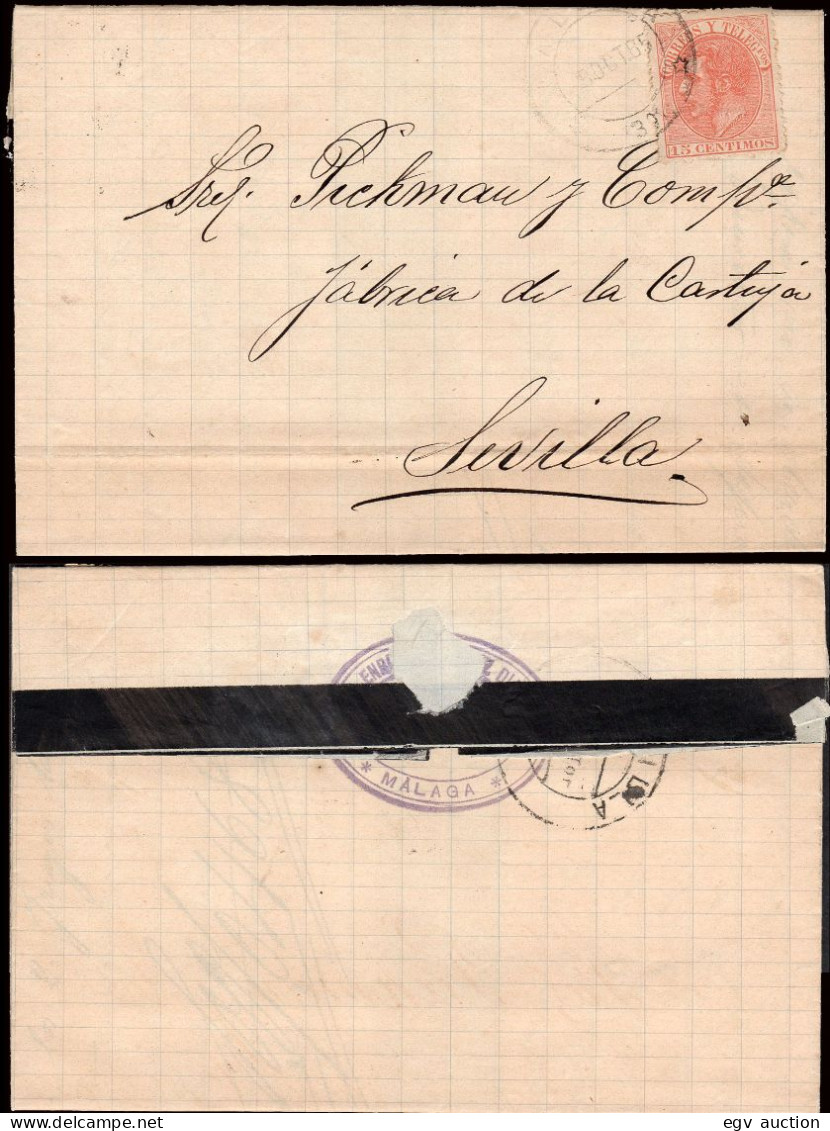 CORREOS Y TELEGFOS
15 CENTIMOS
OCT 85
Sres. Pickman y Compa.
Fábrica de la Cartuja
Sevilla
* MÁLAGA *
egv auction